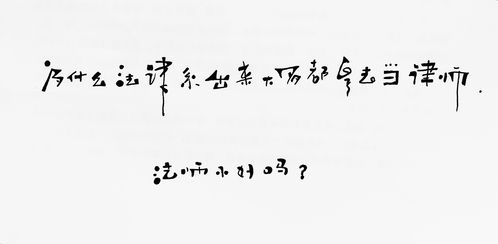 为什么法律系出来大多都是去当律师.
法师不好吗?